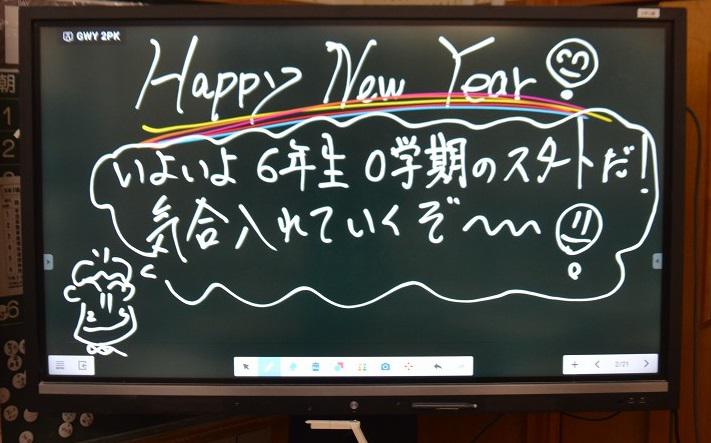 GWY 2PK
Happy New Year
いよいよ 6年生 0学期のスタートだ!
気合入れていくぞ〜〜
朝
1
2
6
2/21